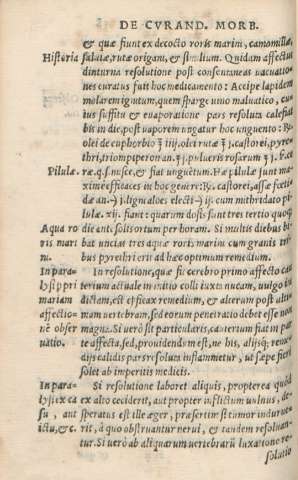 DE CVRAND. MORB.
& quæ fiunt ex decocto roris marini, camomillæ,
Historia saluiæ, rutæ origani, & similium. Quidam affectus
diuturna resolutione post consentaneas vacuatio-
nes curatus fuit hoc medicamento: Accipe lapidem
molarem ignitum, quem sparge vino maluatico, cu-
ius suffitu & euaporatione pars resoluta calefiat
bis in die, post vaporem vngatur hoc vnguento: ℞.
olei de euphorbio ℥ iiij. olei rutæ castorei, pyre-
thri, piperon an. pulueris rosarum
Pilulæ. fiat vnguentũ. Hæ pilulæ iunt ma-
ximè efficaces in hoc genere: ℞. castorei, assæ fœtidæ
dæ an. ligni aloes electi cum mithridato pi-
lulæ. xij. fiant: quarum dosis sunt tres tertio quoq;
Aqua ro die ant. solis ortum per horam. Si multis diebus bi-
ris mari bat vncias tres aquæ roris marini cum granis tri-
ni. bus pyrethri erit ad hæc optimum remedium.
In para- In resolutione, quæ fit cerebro primo affecto cau
lysi ppri terium actuale in initio colli iuxta nucam, vulgo in
mariam dictam, est efficax remedium, & alterum post alte-
affectio- mam vertebram, sed eorum penuria debet esse non
nẽ obser magna. Si verò sit particularis, cauterium fiat in par
uatio. te affecta, sed, prouidendum est, ne his, alijsq; reme-
dijs calidis pars resoluta inflammetur, vt sæpe fieri
solet ab imperitis medicis.
In para- Si resolutione laboret aliquis, propterea quòd
lysi ex ca ex alto ceciderit, aut propter inflictum vulnus, de-
su, aut speratus est ille æger, præsertim si tumor indurue-
ictu, &c. rit, à quo obstruantur nerui, & tandem resoluan-
tur. Si verò ab aliquarum vertebrarũ luxatione re-
solutio